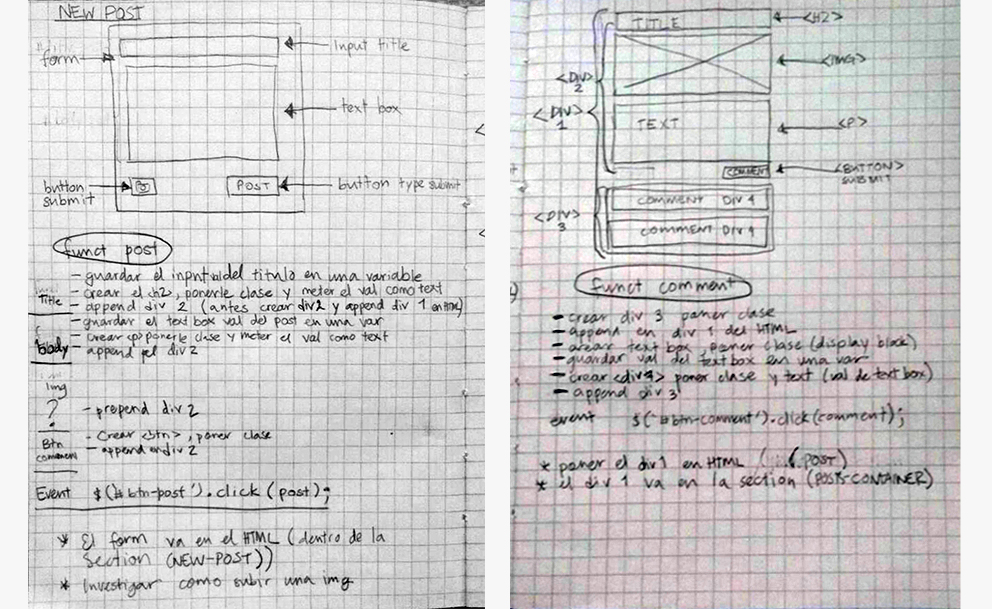 NEW POST
form
Input title
text box
button
submit
POST
button type submit
funct post
- guardar el input val del titulo en una variable
Title
- crear el <h2>, ponerle clase y meter el val como text
- append div 2 (antes crear div2 y append div 1 en HTML)
body
- guardar el text box val del post en una var
- crear <p> ponerle clase y meter el val como text
- append al div 2
Img
?
- prepend div 2
Btn
comment
- Crear <btn>, poner clase
- append en div 2
Event $(#btn-post').click(post);
* El form va en el HTML (dentro de la
Section (NEW-POST))
* Investigar como subir una img
TITLE
<H2>
<IMG>
<DIV>
2
<DIV>
1
TEXT
<P>
COMMENT
<BUTTON>
SUBMIT
<DIV>
3
COMMENT DIV 4
COMMENT DIV 4
funct comment
- crear div 3 poner clase
- append en div 1 del HTML
- crear text box, poner clase (display block)
- guardar val del textbox en una var
- crear <div4> poner clase y text (val de text box)
- append div 3
event $('#btn-comment').click(comment);
* poner el div1 en HTML ( POST)
* el div 1 va en la section (POSTS-CONTAINER)